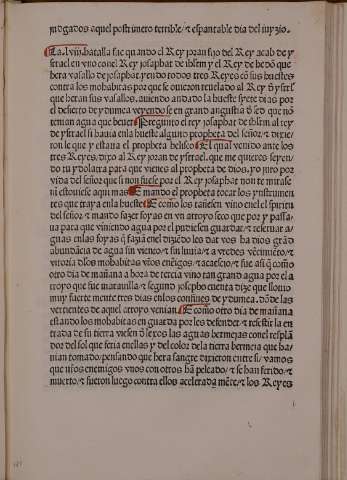 judgados aquel postrimero terrible/ & espantable dia del juyzio.
La .lviii. batalla fue quando el Rey joran fijo del Rey acab de ys
srael en vno con el Rey josaphat de jhrlem y el Rey de hedon que
hera vasallo de josaphat. yendo todos tres Reyes con sus huestes
contra los mohabitas por que se quisieron reuelar al Rey
que heran sus vasallos. auiendo andado la hueste syete dias por
el desierto de ydumea veyendo se en grand angustia de sed que no
tenian agua que beuer Pregunto el rey josaphat de jhrlem al rey
de ysrael si hauia en la hueste alguno propheta del señor/ & dixie
ron le que y estaua el propheta heliseo El qual venido ante los
tres Reyes. dixo al Rey joran de ysrael. que me quieres seyen
do tu y dolatra para que vienes al propheta de dios. yo juro por
vida del señor que si non fuese por el Rey josaphat non te mirase
ni estouiese aqui mas E mando el propheta tocar los ynstrumen
tes que traya en la hueste E como los tañesen vino en el el spiritu
del señor/ & mando fazer foyas en vn arroyo seco que por y passa
ua para que viniendo agua por el pudiesen guardar/ & reseruar a
guas en las foyas que fazian en el diziendo les dar vos ha dios grand
abundancia de agua sin viento/ & sin lluuia/ & a vredes vencimiento/ &
victoria dlos mohabitas vros enemigos/ & acaescio/ & fue asi que como
otro dia de mañana a hora de tercia vino tan grand agua por el a
rroyo que fue marauilla/ & segund josepho cuenta dize que llouio
muy fuerte mente tres dias en los confines de ydumea. donde las
vertientes de aquel arroyo venian E como otro dia de mañana
estando los mohabitas en guarda por les defender/ & resistir la en
trada de su tierra viesen de lexos las aguas bermejas con el resplan
dor del sol que feria en ellas y del color de la tierra bermeja que ha
uian tomado. pensando que hera sangre dixieron entre si/ vamos
que nros enemigos vnos con otros han peleado/ & se han ferido/ &
muerto/ & fueron luego contra ellos acelerada mente/ & los Reyes